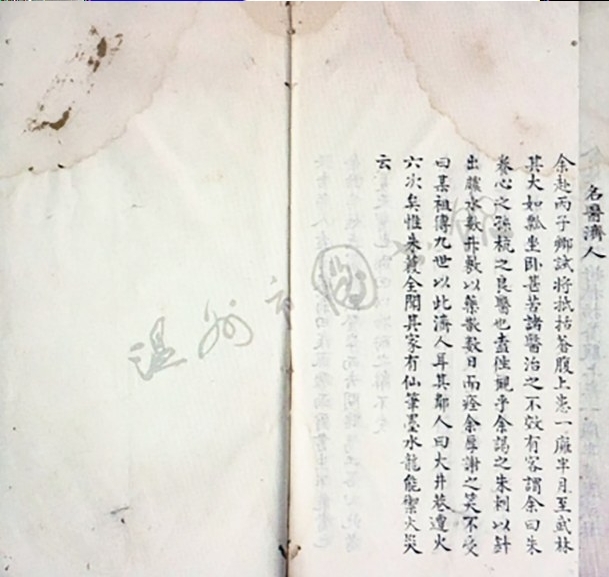 名醫濟人
余赴丙子鄉試將抵括蒼腹上患一癰半月至武林
其大如瓢坐卧甚苦諸醫治之不效有客謂余曰朱
養心之孫杭之良醫也盍徃覌乎余謁之朱柯以針
出膿水數升敷以藥散數日而痊余厚謝之笑不受
曰某祖傳九世以此濟人耳其鄰人曰大井巷遭火
六次矣惟朱葠全閣其家有仙筆墨水龍能禦火災
云
温州市图